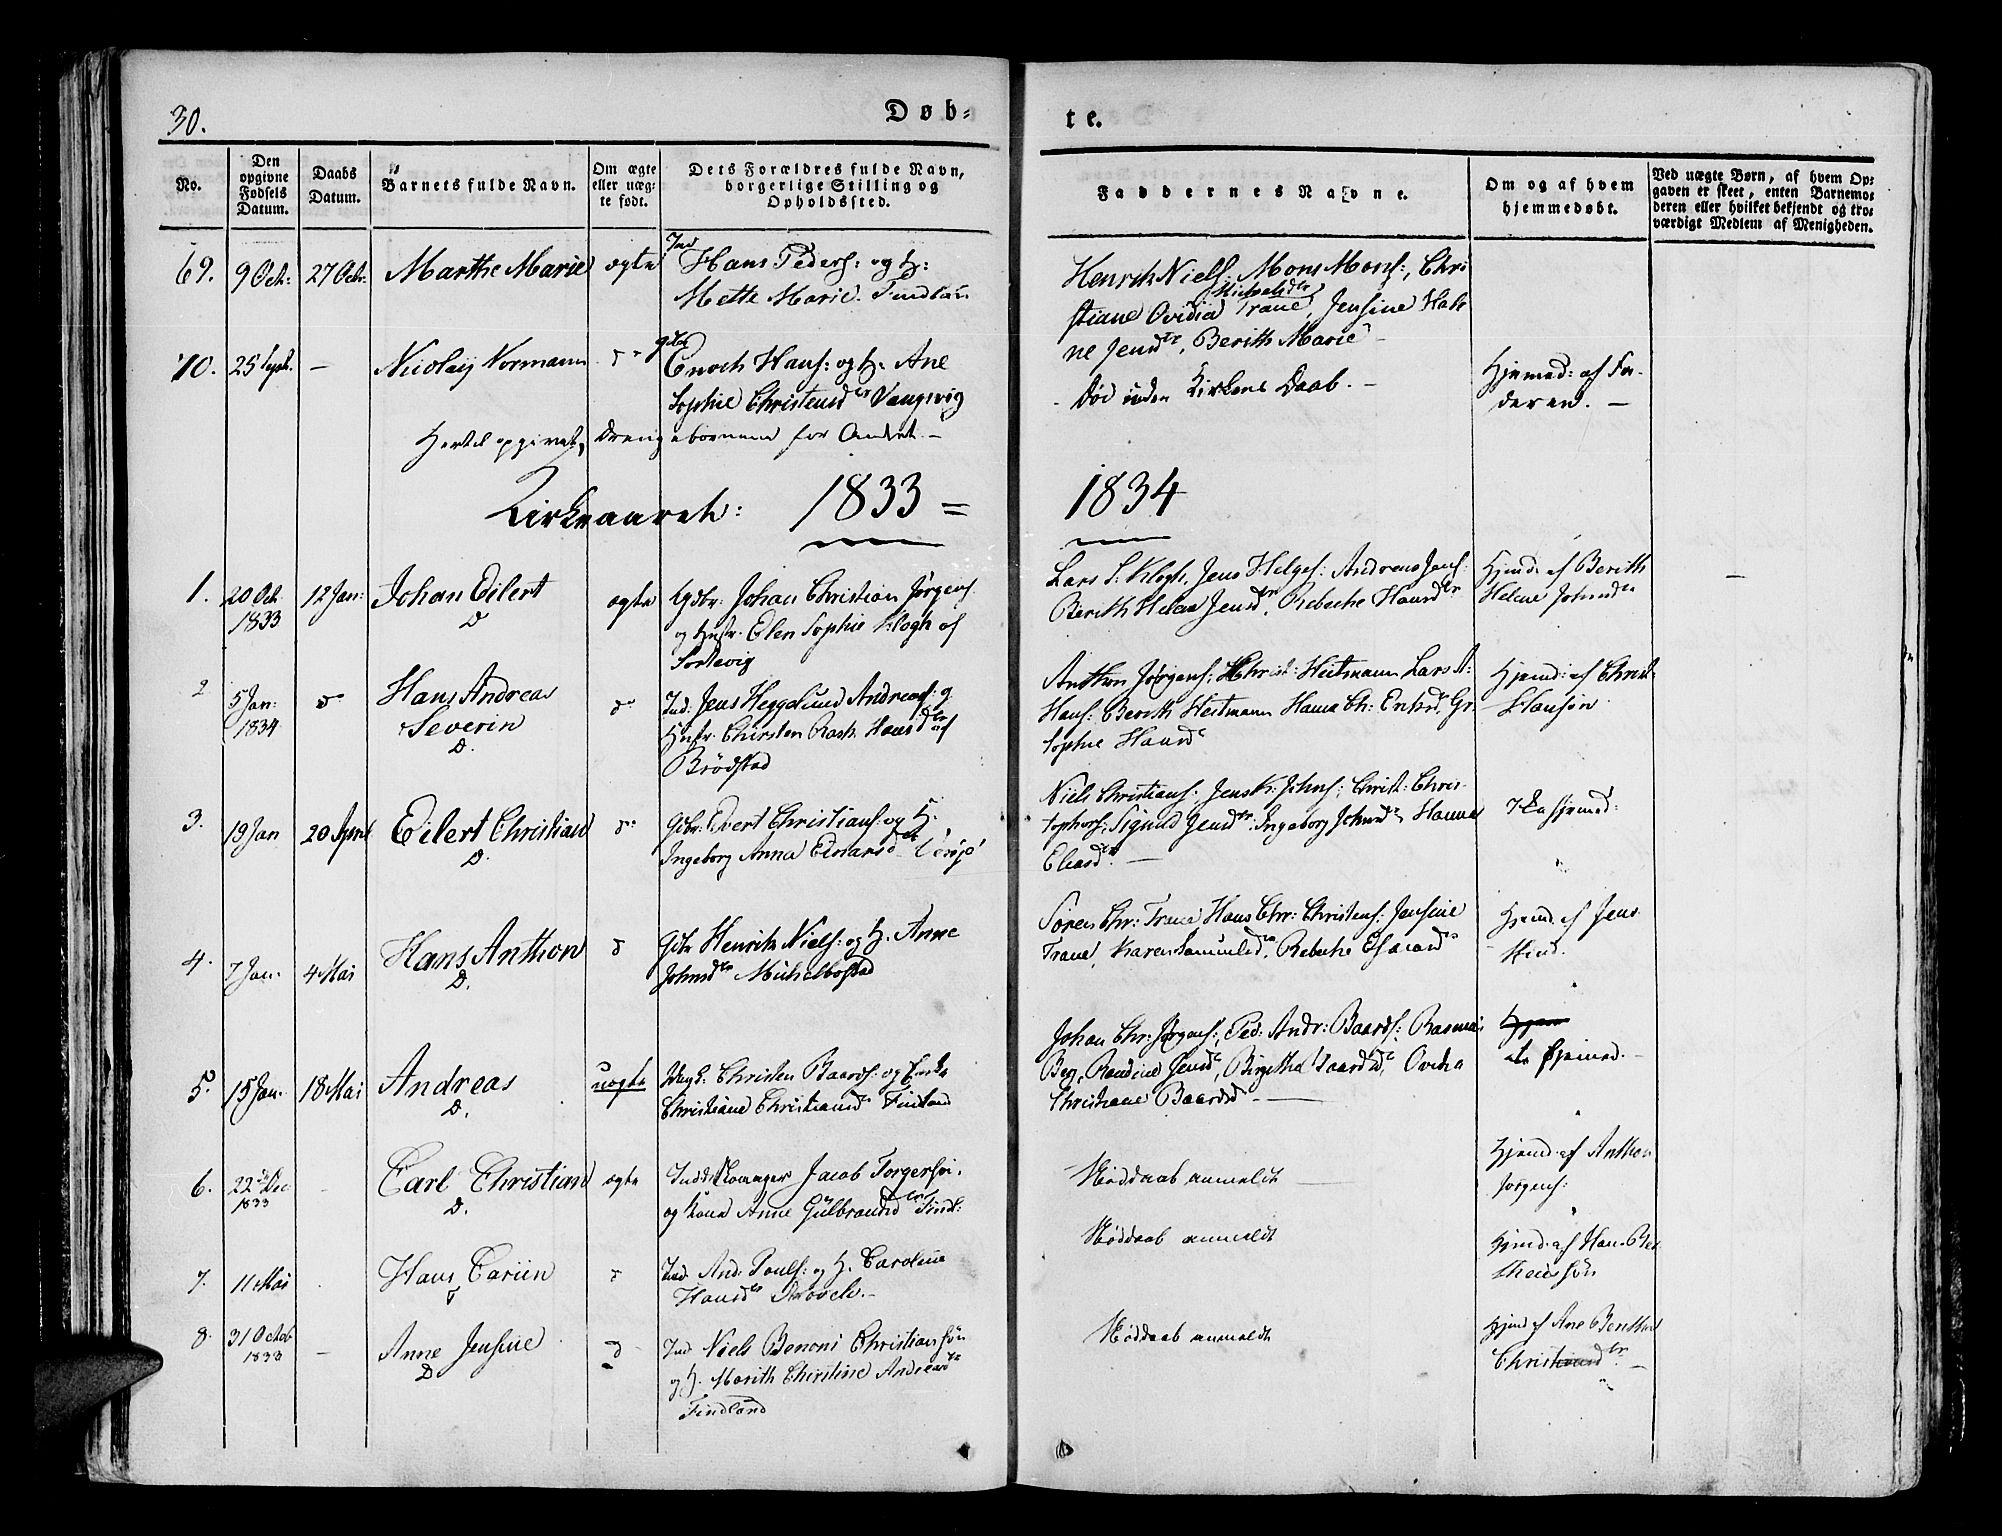 30.
Døb-
te.
No.
Den opgivne Fødsels Datum.
Daabs Datum.
Barnets fulde Navn.
Om ægte eller uægte født.
Dets Forældres fulde Navn, borgerlige Stilling og Opholdssted.
Faddernes Navne.
Om og af hvem hjemmedøbt.
Ved uægte Børn, af hvem Op-
gaven er skeet, enten Barnemo-
deren eller hvilket bekjendt og tro-
værdigt Medlem af Menigheden.
69. 9 Oct: 27 Octr. Marthe Marie ægte Ind Hans Peders: og H:
Mette Marie.
Henrik Niels: Mons Mons:, Chri
stiane Ovidia Michelsdtr Trane, Jensine Hel
ne Jensdtr, Berith Marie
70. 25 Sept. — Nicolaij Normann Gbr Enoch Hans: og H. Ane
Sophie Christensdtr Vangsvig
Død uden Kirkens Daab. —
Hjemed: af Fa-
deren. —
Hertil opgivet, Drengebørnene for Aaret. —
Kirkeaaret: 1833 =
1834
1. 20 Oct 1833 12 Jan: Johan Eilert ægte Gbr. Johan Christian Jørgens:
D
og Hustr. Elen Sophie Klogh af
Lars S. Klogh, Jens Helges: Andreas Jens:
Berith Helena Jensdtr, Rebecke Hansdtr
Hjemd: af Berith
Helene Johnsdtr
—
2 5 Jan: 1834 Hans Andreas
Severin
D.
Ind. Jens Heggelund Andreas: og
Hustr. Chirsten Rask Hansdtr af
Brødstad
Anthon Jørgens: Christ: Heitmann Lars A:
Hans: Berith Heitmann Hanna Ch:
Sophie Hansd
Hjemd: af Christ
Hansøn
3. 19 Jan 20 April Eilert Christian Gbr: Evert Christians: og H.
D.
Ingeborg Anna
Niels Christians: Jens K: Johns: Christ: Chris-
tophers: Sigrud Jensdtr, Ingeborg Johnsdtr Hanna
Eliasdtr —
4. 7 Jan. 4 Mai Hans Anthon Gbr Henrik Niels: og H. Anne
D.
Johnsdtr Michelbostad
Søren Chr: Trane Hans Chr: Christens: Jensine
Trane, Karen Samuelsd Rebecke Esaiasd
Hjemd. af Jens
Hind.
5. 15 Jan. 18 Mai Andreas uægte Christen Baards: og
D.
Christiane Christiansd Finland
Johan Chr: Jørgens:, Ped: Andr: Baards: Rasmus
Berg, Jensd, Birgitha Baardsd, Ovidia
Christiane Baardsd —
6. 22 Dec 1833 Carl Christian ægte Jacob Torgersøn.
D.
og Kone Anne Gulbrandsdtr Findl:
Nøddaab anmeldt —
Hjemd: af Anthon
Jørgens:
7. 11 Mai Hans Ind. And: Pouls: og H. Caroline
Hansdtr
Nøddaab anmeldt
Hjemd: af Hans Ber
8. 31 Octob 1833 — Anne Jensine Ind Niels Benoni Christiansøn
D
og H. Marith Christine Andreasdtr
Findland
Nøddaab anmeldt
Hjemd af Ane Benthe
Christiansdtr —